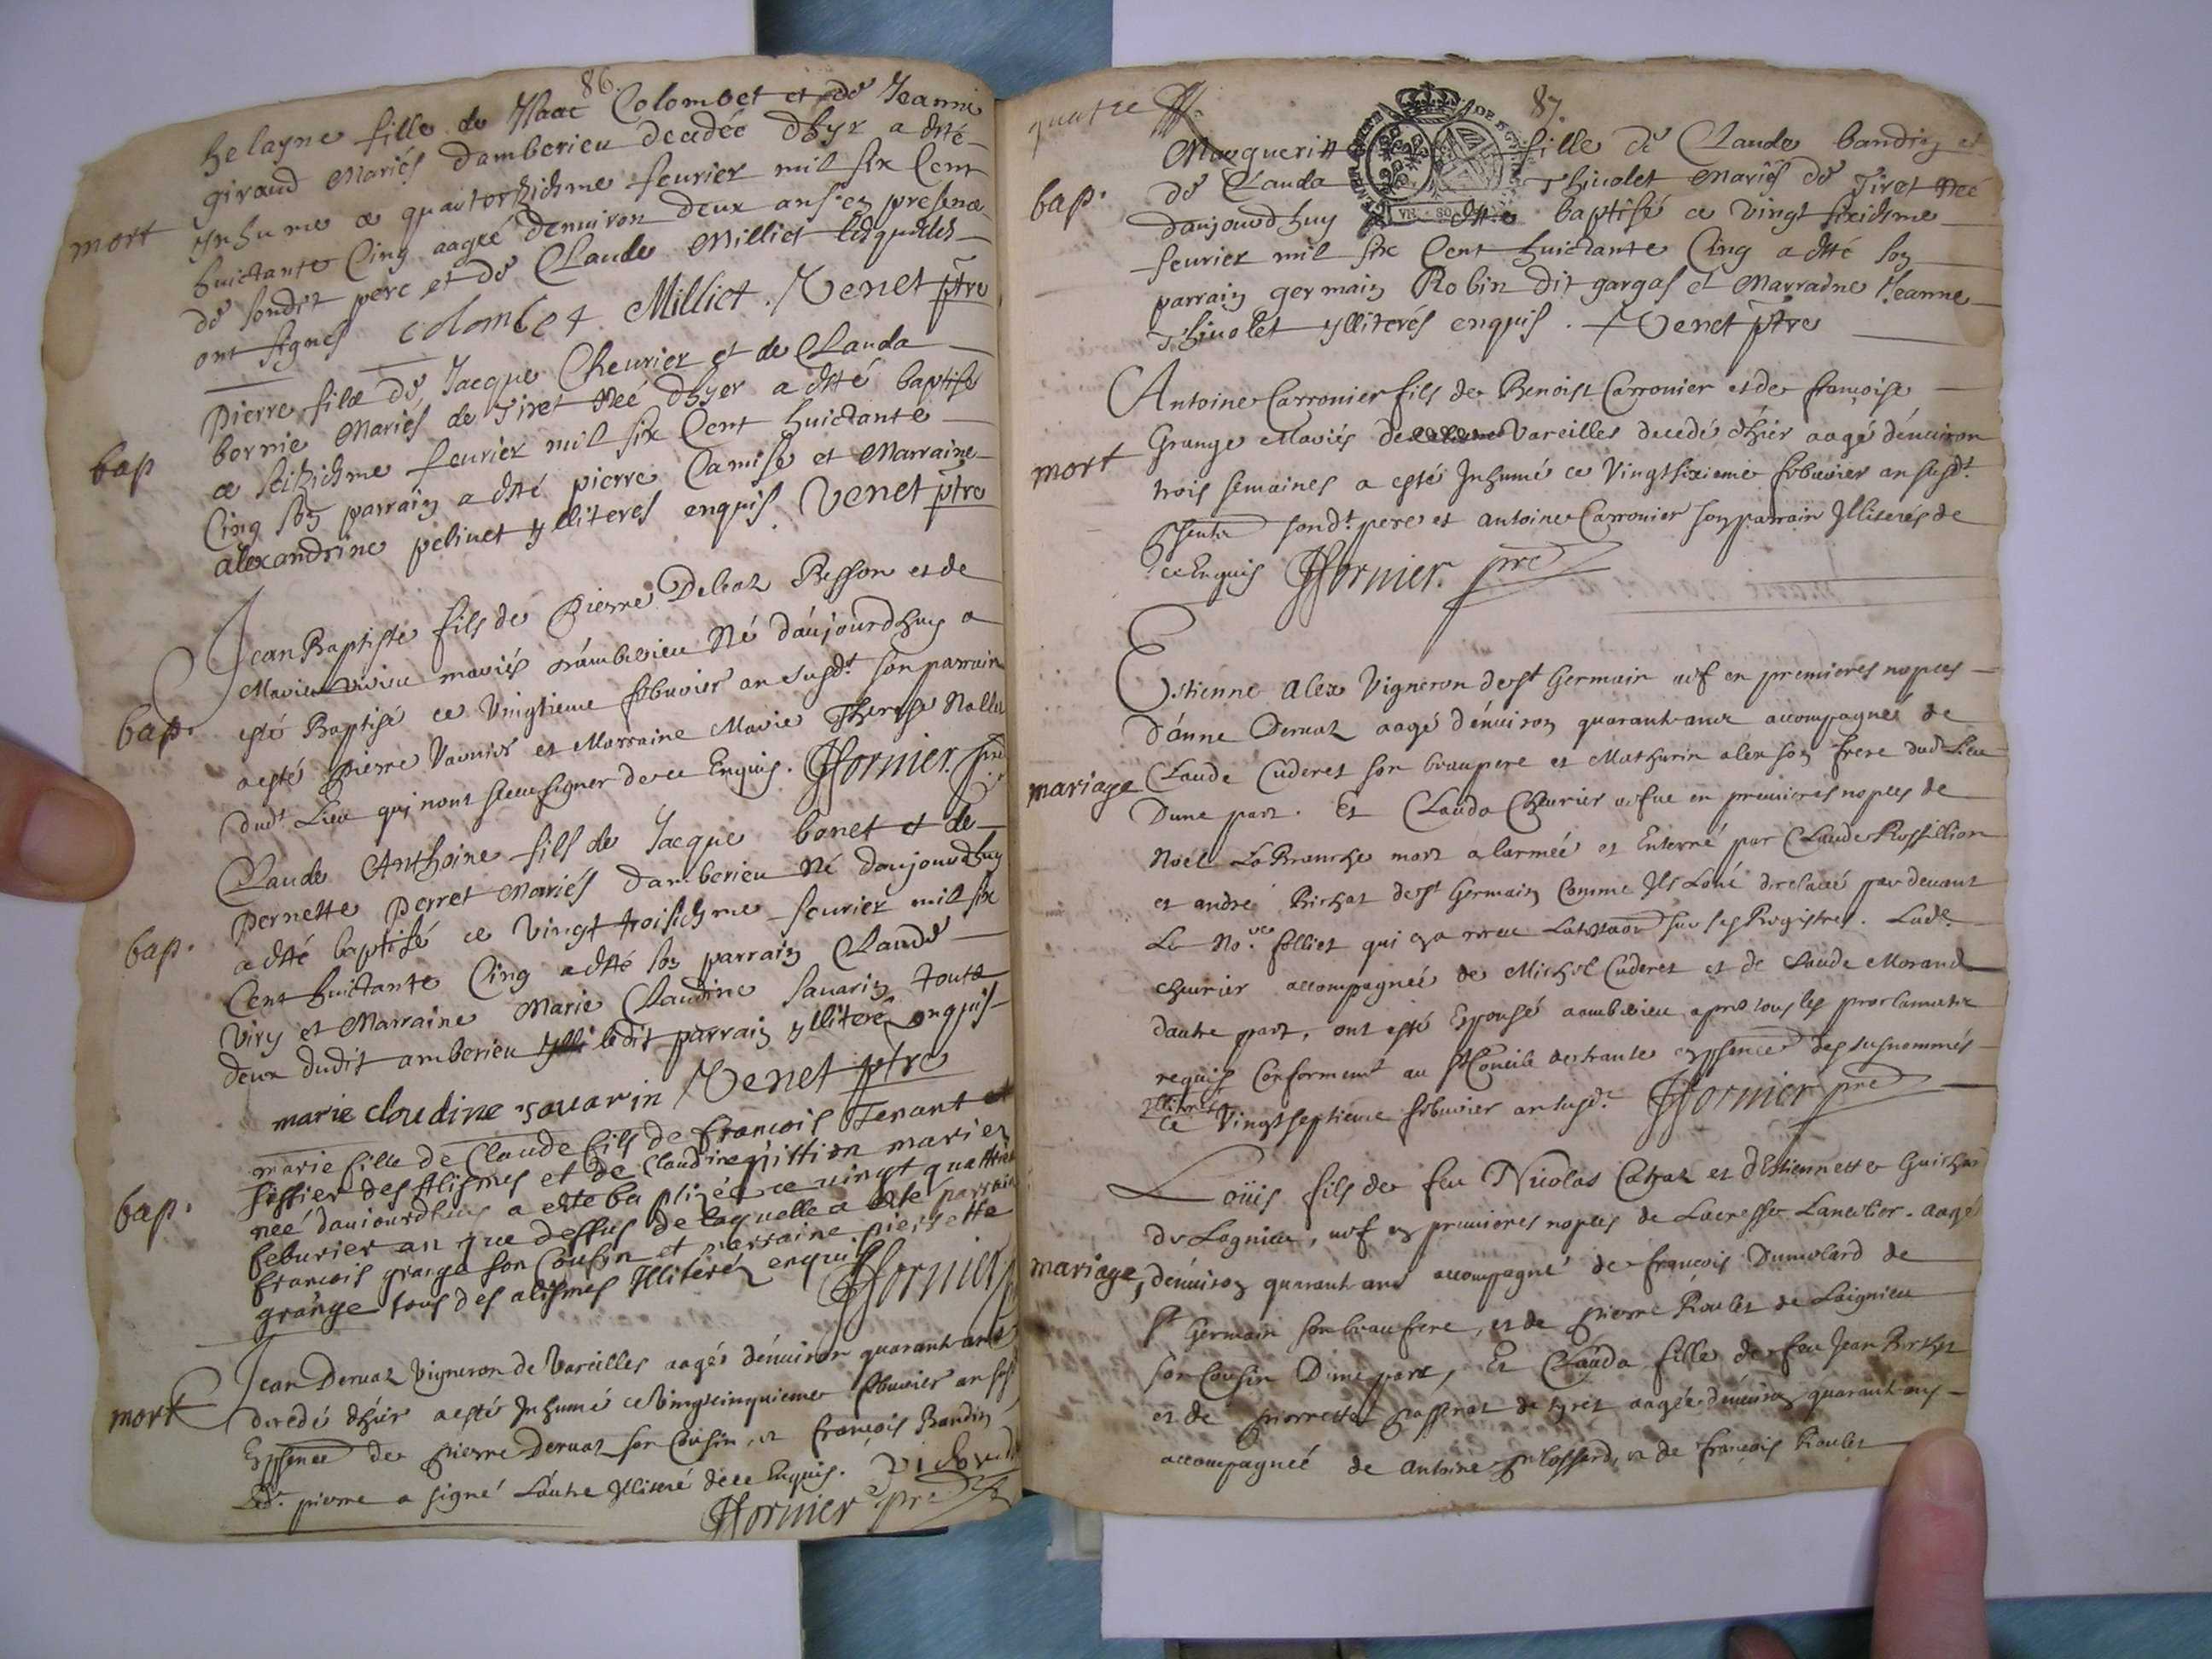 86.
helayne fille de Ysaac Colombet et de Jeanne
giraud Mariés damberieu decedée dhyr a esté
mort
Inhumee ce quatorzichme feurier mil six Cent
huictante Cinq aagée denuiron deux ans en presence
de sondit pere et de Claude Milliet lesquelles
ont signes colombet Milliet. Venet ptre
pierre filz de Jacque Cheurier et de Clauda
bornie Mariés de Tiret Née dhyer a esté baptisé
bap
ce seizichme feurier mil six Cent huictante
Cinq son parrain a esté pierre Camise et Marraine
alexandrine pelinet ylliteres enquis. Venet ptre
Jean Baptiste fils de Pierre Besson et de
Marie mariés d'amberieu Né d'aujourdhuy a
bap.
esté Baptisé ce Vingtieme febuvier an susdt. son parrain
a esté Pierre et Marraine Marie Therese
dudt Lieu qui nont sceu signer de ce Enquis. fornier. pre
Claude Anthoine fils de Jacque bonet et de
Pernette Perret Mariés damberieu Né daujourdhuy
bap.
a esté baptisé ce Vingt troisichme feurier mil six
Cent huictante Cinq a esté son parrain Claude
Viry et Marraine Marie Claudine sauarin toute
deux dudit amberieu ylli ledit parrain ylliteré enquis
marie cloudine sauarin Venet ptre
marie fille de Claude fils de francois Tenant et
des Alismes et de Claudine pittion mariez
bap.
neé daujourdhuy a este baptizée ce uingt quattrie
feburier an que dessus de laquelle a esté parrain
francois grange son Cousin et marraine pierrette
grange tous des alismes Illiterez enquis fornier
Jean Deruaz Vigneron de Vareilles aagés dénuiron quarant ans
mort
decedé dhier a esté Inhumé ce Vingtcinquieme febuvier an susd
Enpsence de pierre Deruaz son Cousin, et françois Bandin
Ledt. pierre a signé L'autre Illiteré de ce Enquis.
fornier pre
quatre
87.
Margueritte fille de Claude bandin et
bap.
de Clauda Thiuolet Mariés de Tiret Née
daujourdhuy a esté baptisé ce vingt sixichme
feurier mil six Cent huictante Cinq a esté son
parrain germain Robin dit gargas et Marraine Jeanne
Thiuolet ylliterés enquis. Venet ptre
Antoine Carronier fils de Benoist Carronier et de françoise
Grange Mariés de Vareilles decedé d'hier aagé dénuiron
mort
trois semaines a esté Inhumé ce Vingtsixieme febuvier an susdt.
psents sondt. pere et antoine Carronier son parrain Illiterés de
ce Enquis fornier. pre
Estienne Alex Vigneron de st Germain uef en premieres nopces
d'anne Deruaz aagé dénuiron quarant ans accompagné de
mariage
Claude Cuderet son beaupere et Mathurin alex son frere dud Lieu
Dune part. Et Clauda Cheurier uefue en premieres nopces de
Noël La Branche mort a larmée et Enterré par Claude Rossillion
et andré Birhat de st Germain Comme Ils Lont declaré par devant
Le No. folliet qui en a receu sur ses Registres. Lade.
cheurier accompagnée de Michel Cuderet et de Claude Morand
dautre part, ont esté Espousé aambérieu apres tous les proclamats
requis Conformemt au st Concile de trante enpsence des susnommés
Illiterés
Ce Vingtseptieme febuvier an susdt. fornier pre
Loüis fils de feu Nicolas et d'Estiennette Guichar
de Lagnieu, uef en premieres nopces de Lucresse Lancelier. aagé
mariage,
dénuiron quarant ans accompagné de françois Dumolard de
st Germain son beaufrere, et de pierre Roulet de Laignieu
son Cousin Dune part, Et Clauda fille de feu Jean
et de pierrette de tyret aagée dénuiron quarant ans
accompagnée de Antoine, et de françois Roulet